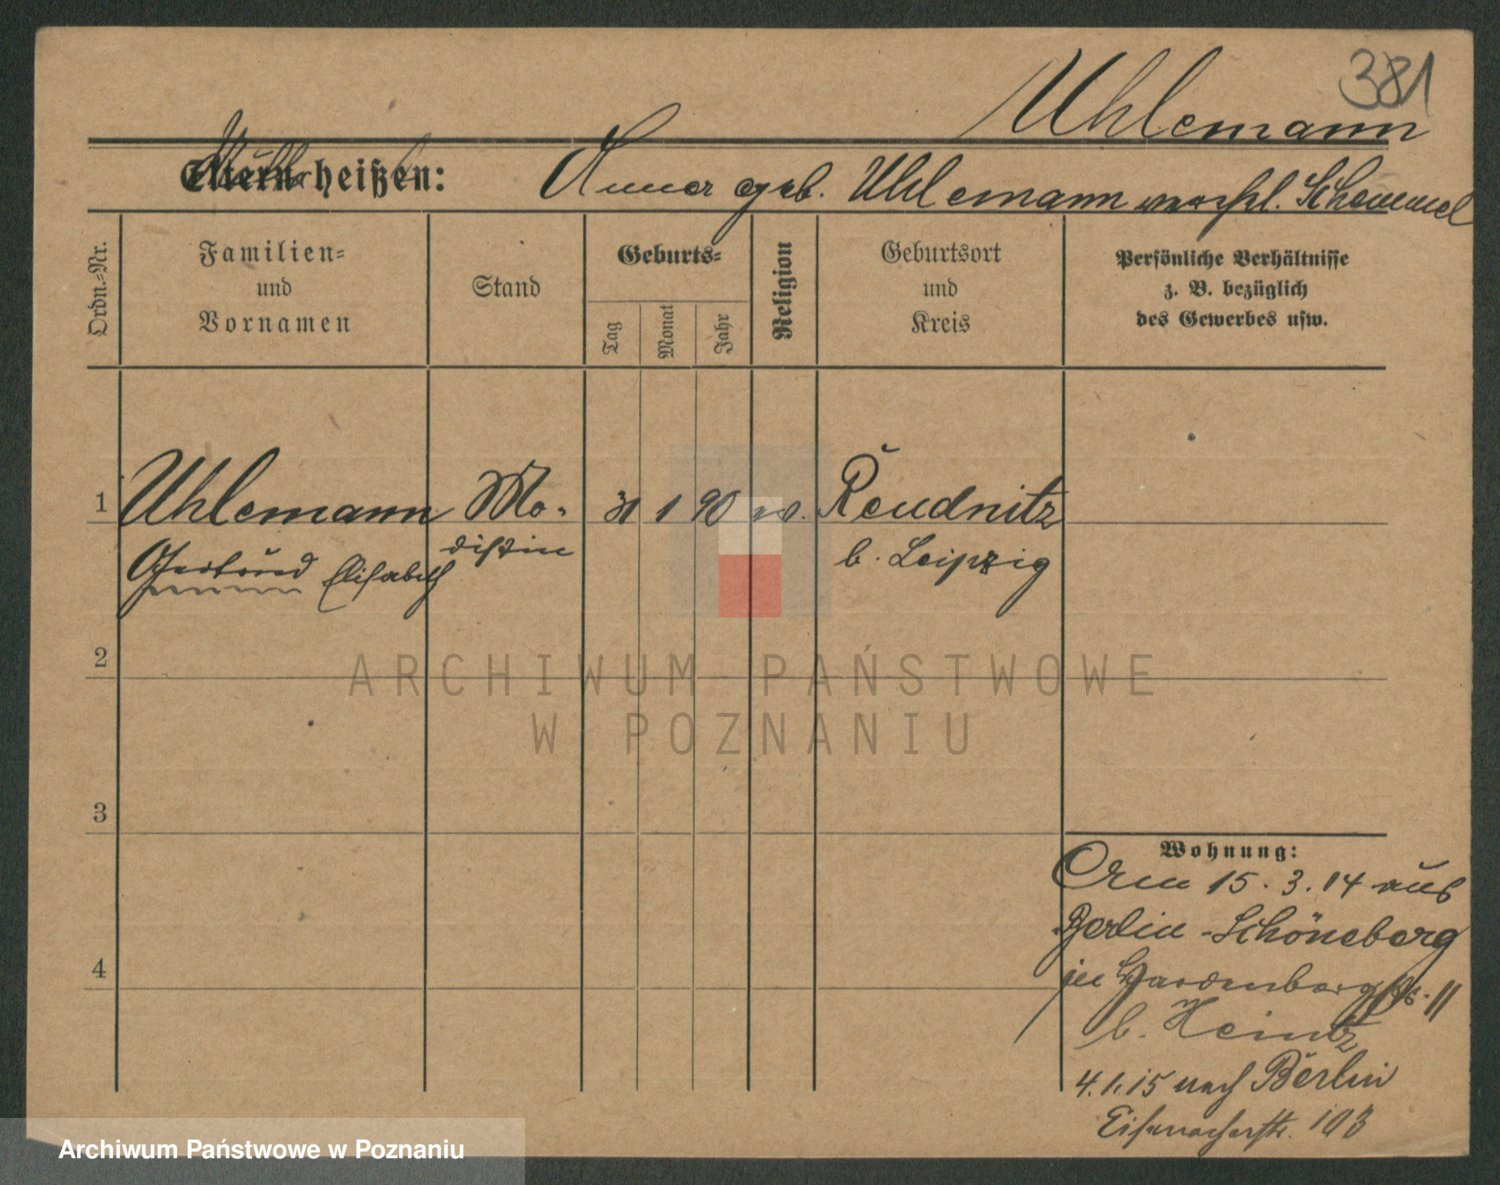 381
Uhlemann
Mutter
Eltern heißen: Anna geb. Uhlemann verehl. Schemmel
Ordn.-Nr.
Familien-
und
Vornamen
Stand
Geburts-
Tag
Monat
Jahr
Religion
Geburtsort
und
Kreis
Persönliche Verhältnisse
z. B. bezüglich
des Gewerbes usw.
1 Uhlemann Mo- 31 1 90 Reudnitz
Gertrud Elisabeth distin b. Leipzig
2
3
4
Wohnung:
15. 3. 14 aus
Berlin-Schöneberg
in Hardenbergstr. 11
b. Heintz
4.1.15 nach Berlin
Eisenacherstr. 103
ARCHIWUM PAŃSTWOWE
W POZNANIU
Archiwum Państwowe w Poznaniu